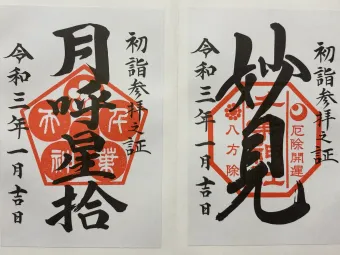 初詣参拝之証
月呼星拾
令和三年一月吉日
初詣参拝之証
厄除開運
妙見
八方除
令和三年一月吉日